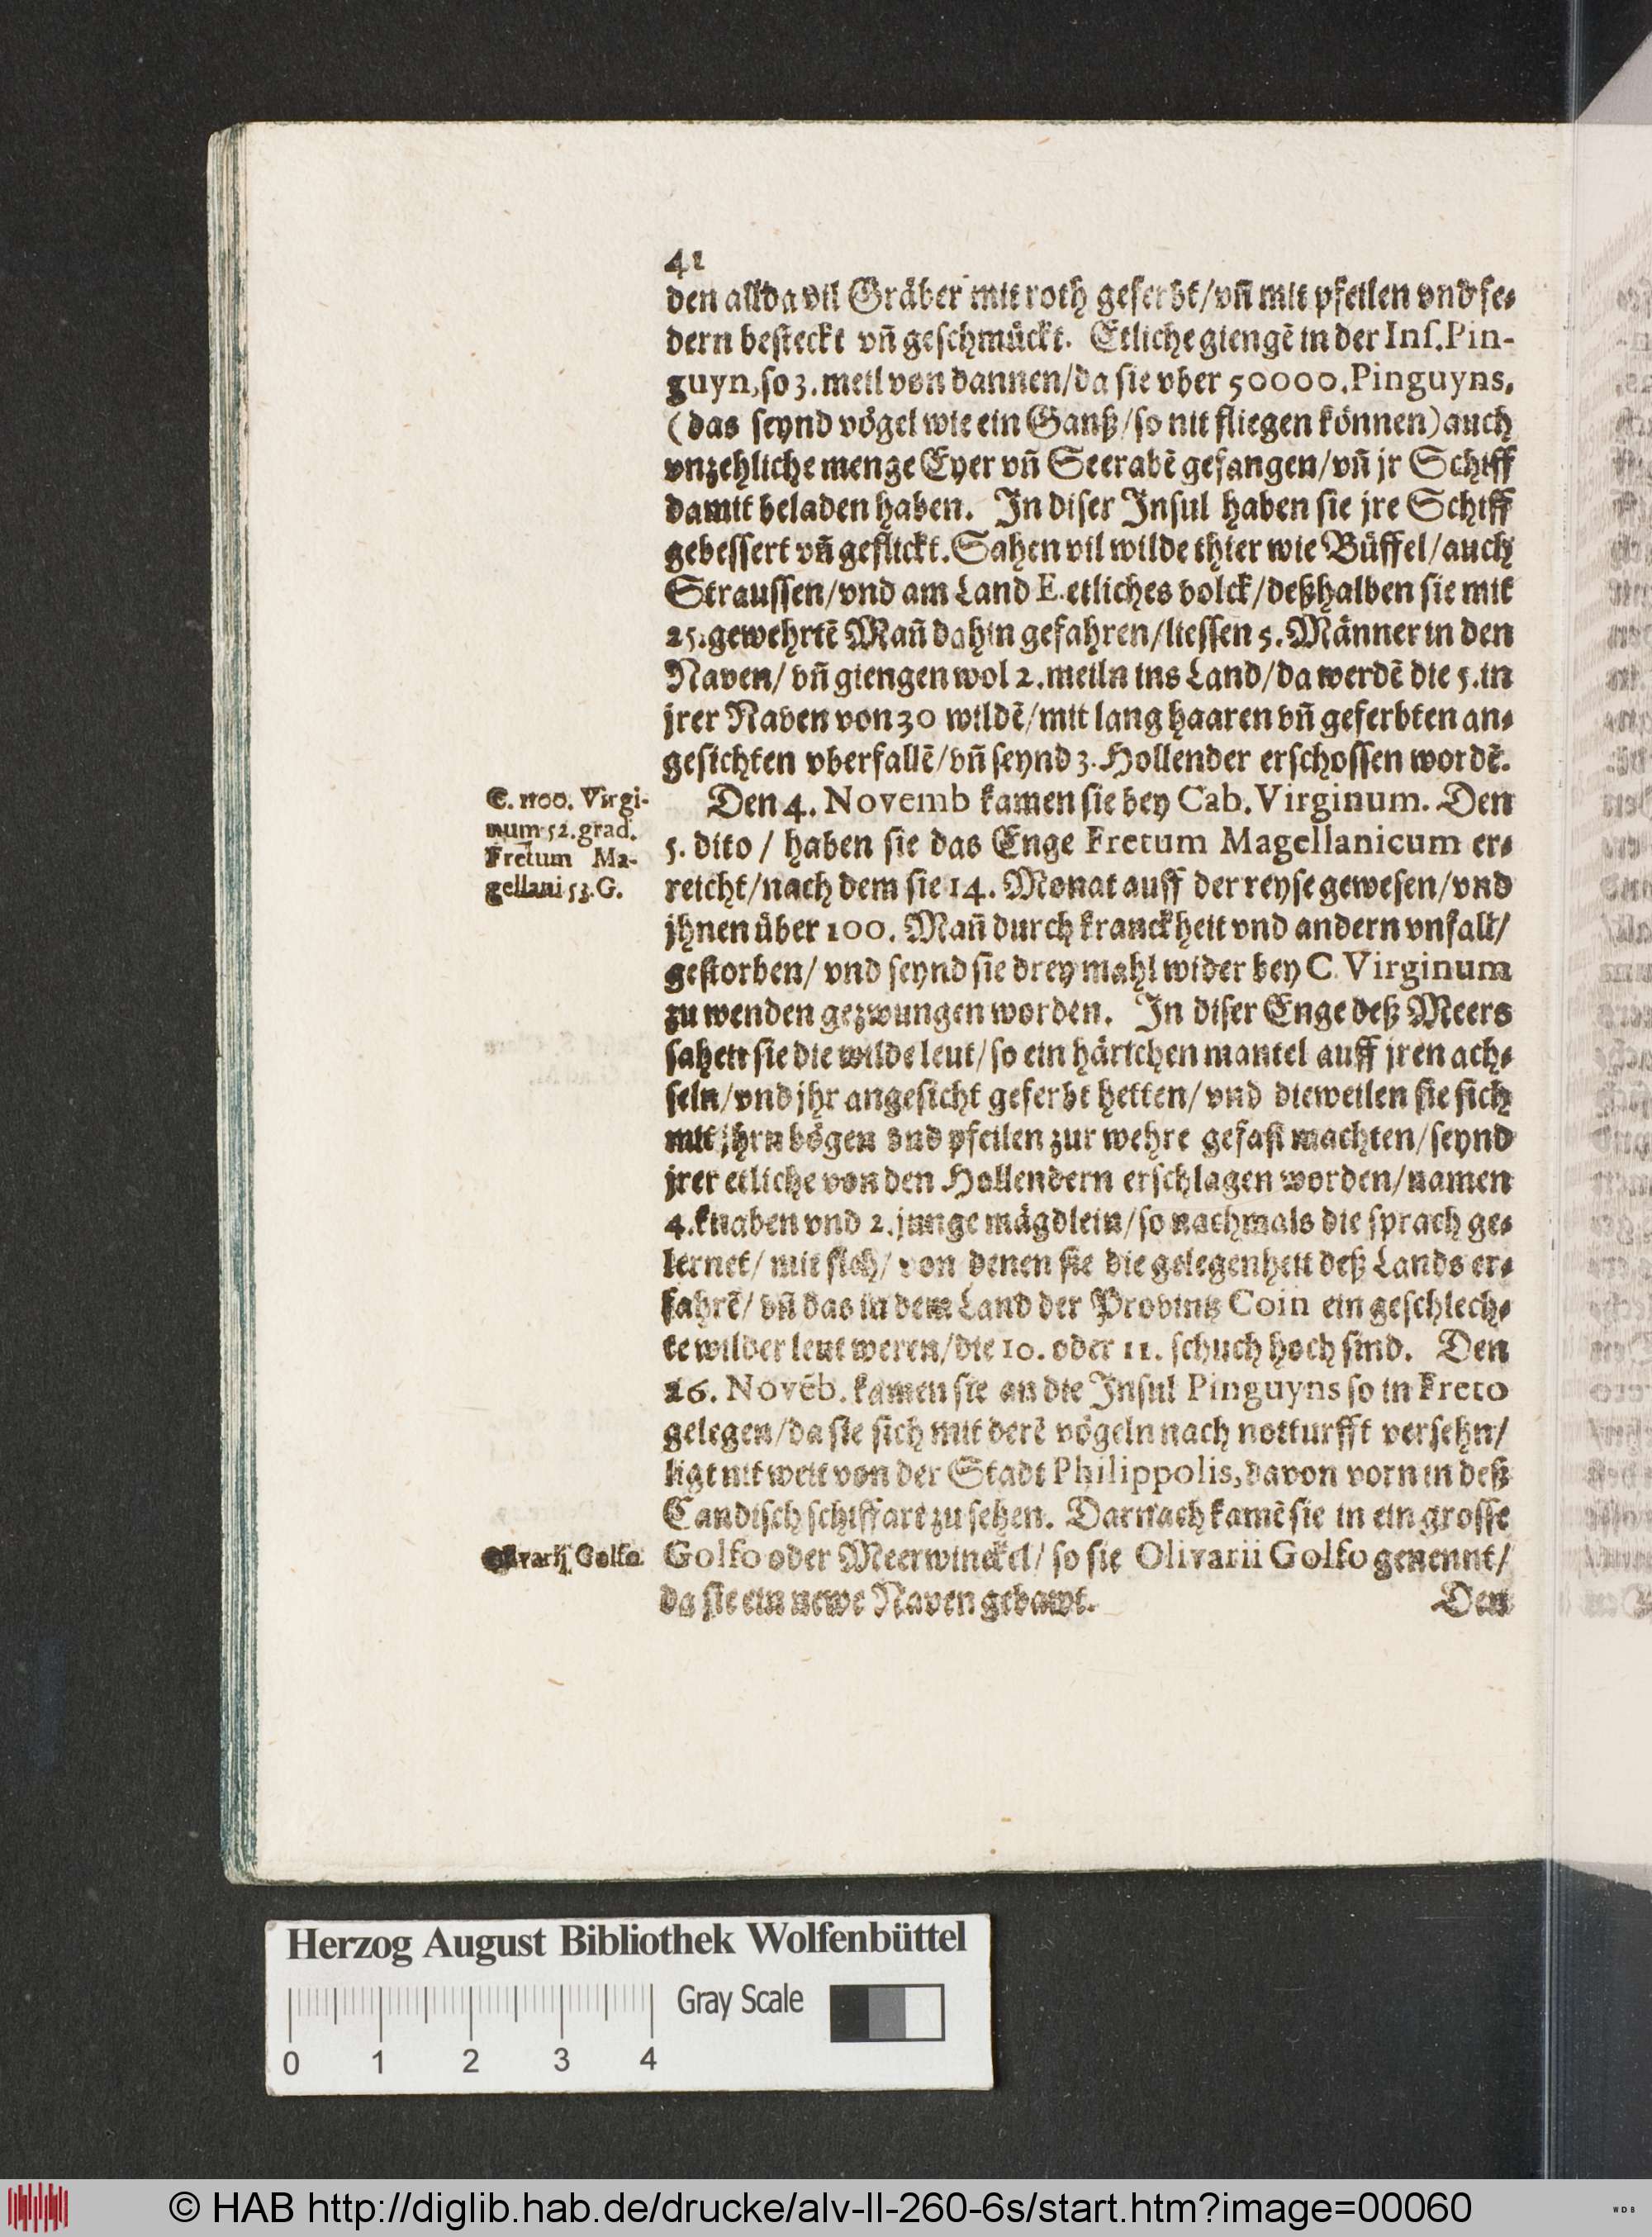 41
den allda vil Gräber mit roth geferbt/vñ mit pfeilen vnd fe-
dern besteckt vñ geschmückt. Etliche giengē in der Ins. Pin-
guyn, so 3. meil von dannen/da sie vber 50000. Pinguyns,
(das seynd vögel wie ein Ganß/so nit fliegen können) auch
vnzehliche menge Eyer vñ Seerabē gefangen/vñ jr Schiff
damit beladen haben. In diser Insul haben sie jre Schiff
gebessert vñ geflickt. Sahen vil wilde thier wie Büffel/auch
Straussen/vnd am Land E. etliches volck/deßhalben sie mit
25. gewehrtē Mañ dahin gefahren/liessen 5. Männer in den
Naven/vñ giengen wol 2. meiln ins Land/da werdē die 5. in
jrer Naven von 30 wildē/mit lang haaren vñ geferbten an-
gesichten vberfallē/vñ seynd 3. Hollender erschossen wordē.
C. Virgi-
num 52. grad.
Fretum Ma-
gellani 53. G.
Den 4. Novemb kamen sie bey Cab. Virginum. Den
5. dito / haben sie das Enge Fretum Magellanicum er-
reicht/nach dem sie 14. Monat auff der reyse gewesen/vnd
jhnen über 100. Mañ durch kranckheit vnd andern vnfall/
gestorben/ vnd seynd sie drey mahl wider bey C Virginum
zu wenden gezwungen worden. In diser Enge deß Meers
sahen sie die wilde leut/so ein härichen mantel auff jren ach-
seln/vnd jhr angesicht geferbt hetten/ vnd dieweilen sie sich
mit jhrn bögen vnd pfeilen zur wehre gefast machten/seynd
jrer etliche von den Hollendern erschlagen worden/namen
4. knaben vnd 2. junge mägdlein/so nachmals die sprach ge-
lernet/ mit sich/ von denen sie die gelegenheit deß Lands er-
fahrē/ vñ das in dem Land der Provintz Coin ein geschlech-
te wilder leut weren/die 10. oder 11. schuch hoch sind. Den
26. Novēb. kamen sie an die Insul Pinguyns so in Freto
gelegen/da sie sich mit derē vögeln nach notturfft versehn/
ligt nit weit von der Stadt Philippolis, davon vorn in deß
Candisch schiffart zu sehen. Darnach kamē sie in ein grosse
Olivarij Golfo.
Golfo oder Meerwinckel/ so sie Olivarii Golfo genennt/
da sie ein newe Naven gebawt. Den
Herzog August Bibliothek Wolfenbüttel
Gray Scale
0 1 2 3 4
© HAB http://diglib.hab.de/drucke/alv-ll-260-6s/start.htm?image=00060
WDB